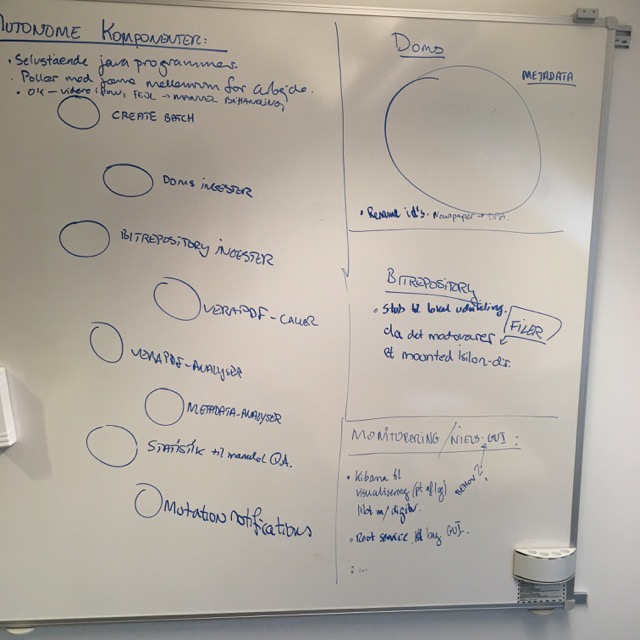 AUTONOME KOMPONENTER:
• Selvstående java programmer.
• Poller med jævne mellemrum for arbejde.
• OK → videre i flow, FEJL → MANUEL BEHANDLING
CREATE BATCH
DOMS INGESTER
BITREPOSITORY INGESTER
VERAPDF-CALLER
VERAPDF-ANALYSER
METADATA-ANALYSER
STATISTIK til manuel QA.
Mutation notifications
DOMS
METADATA
• Rename id's. Newspaper →
BITREPOSITORY
• Stub til lokal udvikling.
da det modsvarer
et mounted Isilon-dir.
FILER
MONITORERING / NIELS-GUI:
BEHOV?
• Kibana til
visualisering (pt aflg)
lidt m/ digitv.
• Rest service til brug GUI.